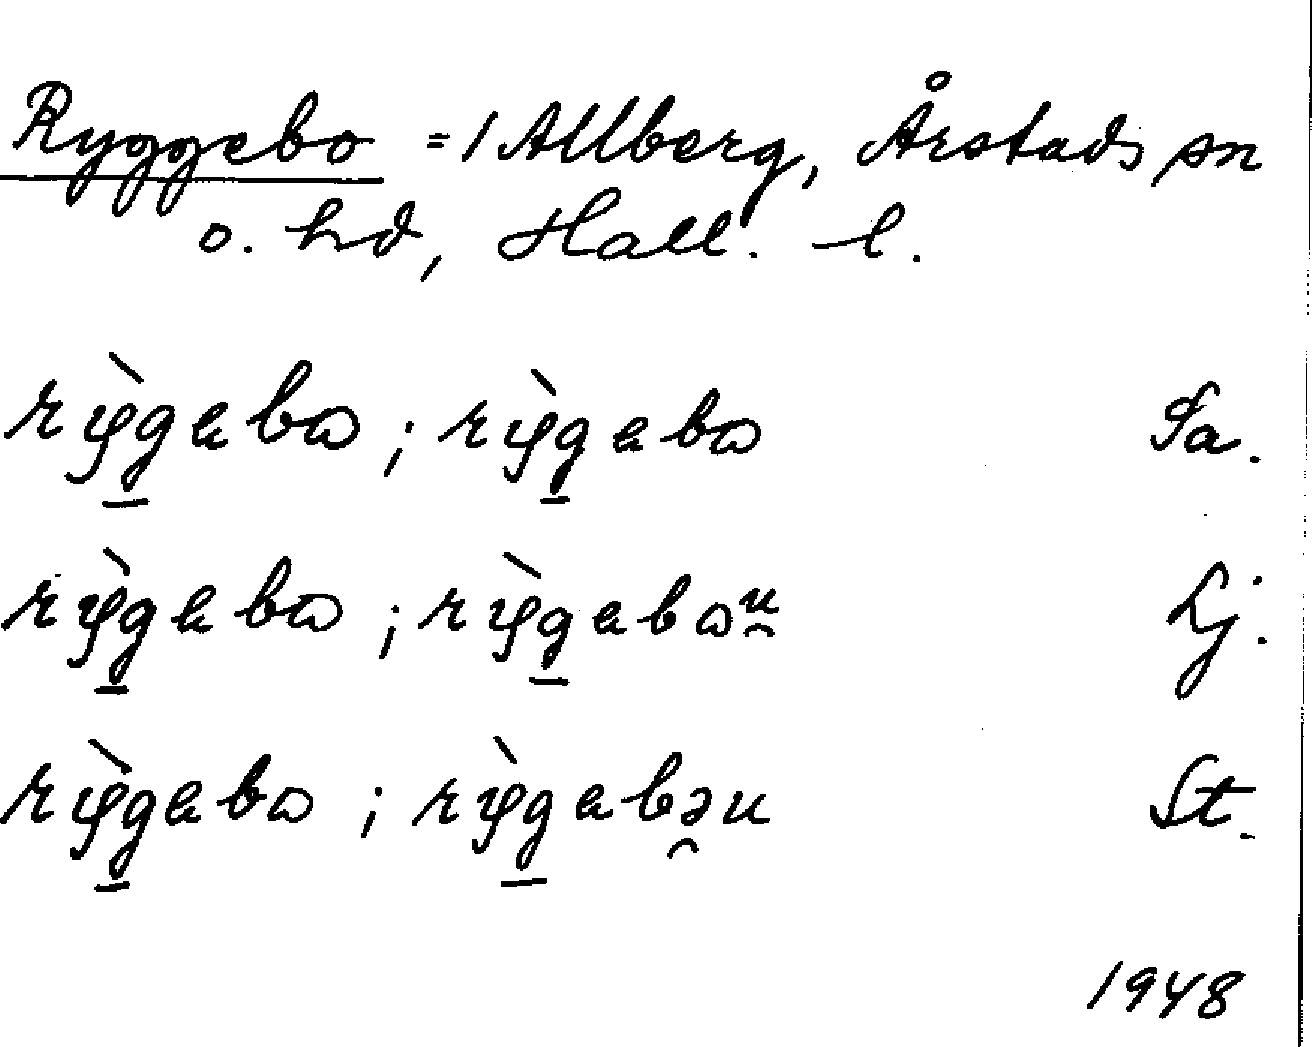 Ryggebo =/ Allberg, Årstads sn
o. hd, Hall. l.
rỳg̲ebɷ ; rỳg̲ebɷ Sa.
rỳg̲ebɷ ; rỳg̲ebɷu̯ Lj.
rỳg̲ebɷ ; rỳg̲ebə̯u St.
1948